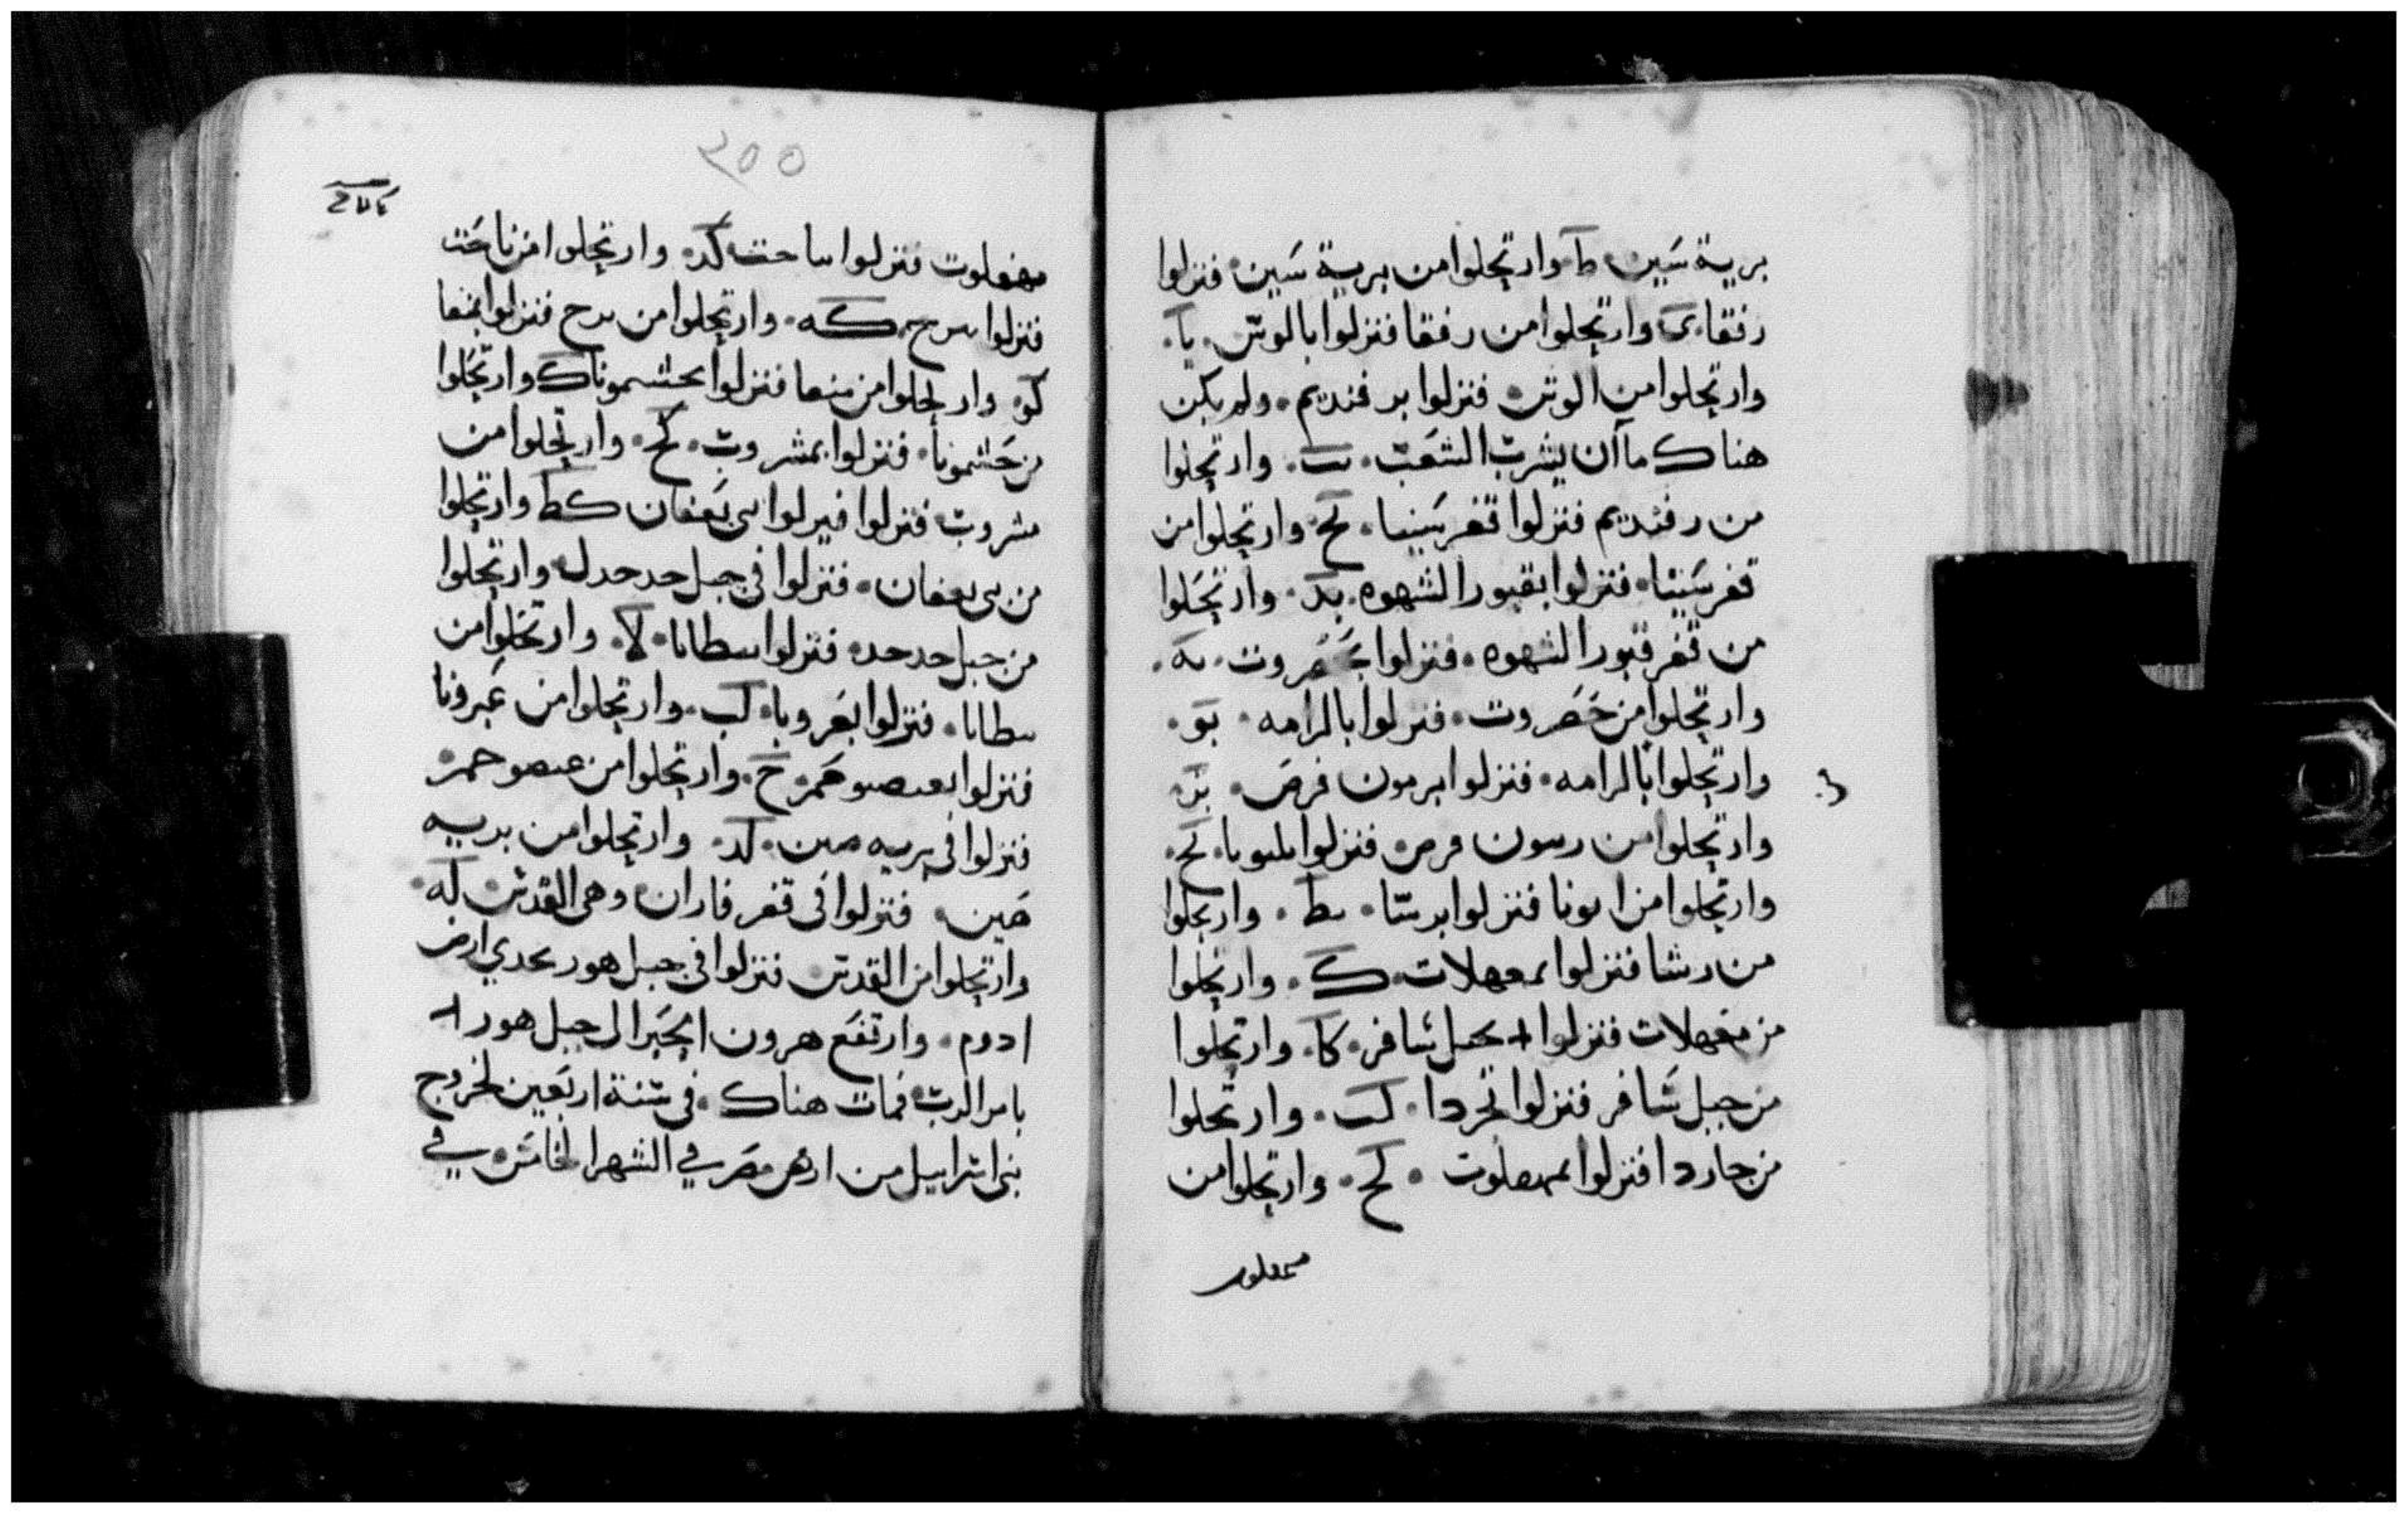 برية سين ط وارتحلوا من برية سين فنزلوا
رفقا ى وارتحلوا من رفقا فنزلوا بالوش يا
وارتحلوا من الوش فنزلوا برفنديم ولم يكن
هناك ماآن يشرب الشعب يب وارتحلوا
من رفنديم فنزلوا قفر سينا يح وارتحلوا من
قفر سينا فنزلوا بقبور الشهوه يد وارتحلوا
من قفر قبور الشهوه فنزلوا بحصروت يه
وارتحلوا من حصروت فنزلوا بالرامه يو
وارتحلوا بالرامه فنزلوا برمون فرص يز
وارتحلوا من رمون فرص فنزلوا بلبونا يح
وارتحلوا من لبونا فنزلوا برسا يط وارتحلوا
من رشا فنزلوا بمعهلات ك وارتحلوا
من مقهلات فنزلوا بجبل شافر كا وارتحلوا
من جبل شافر فنزلوا بحردا كب وارتحلوا
من حاردا فنزلوا بمهصلوت كح وارتحلوا من
٢٥٥
مقهلوت فنزلوا باحت كد وارتحلوا من تاحت
فنزلوا بترح كه وارتحلوا من ترح فنزلوا بمنعا
كو وارتحلوا من متعا فنزلوا بحشمونا كز وارتحلوا
من حشمونا فنزلوا بمشروت كح وارتحلوا من
مشروت فنزلوا فنزلوا بنى يعفان كط وارتحلوا
من بنى يعفان فنزلوا فى جبل حدحد ل وارتحلوا
من جبل حدحد فنزلوا بيطاباا لا وارتحلوا من
يطابا فنزلوا بعبرونا لب وارتحلوا من عبرونا
فنزلوا بعصيو حمر لح وارتحلوا من عصيو حمر
فنزلوا فى بريه صين لد وارتحلوا من بريه
صين فنزلوا فى قفر فاران وهى القدس له
وارتحلوا من القدس فنزلوا فى جبل هور بحدي ارض
ادوم وارتفع هرون الحبر الى جبل هور
بامر الرب فمات هناك فى سنة اربعين لخروج
بنى اسراييل من ارض مصر في الشهر الخامس في